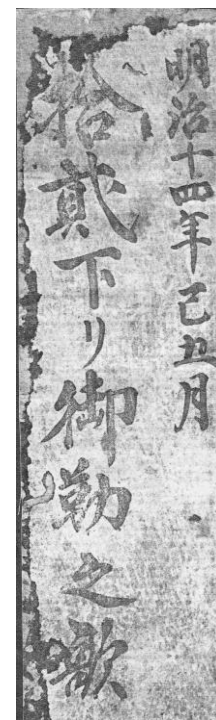 明治十四年巳五月
拾貳下リ御勤之歌